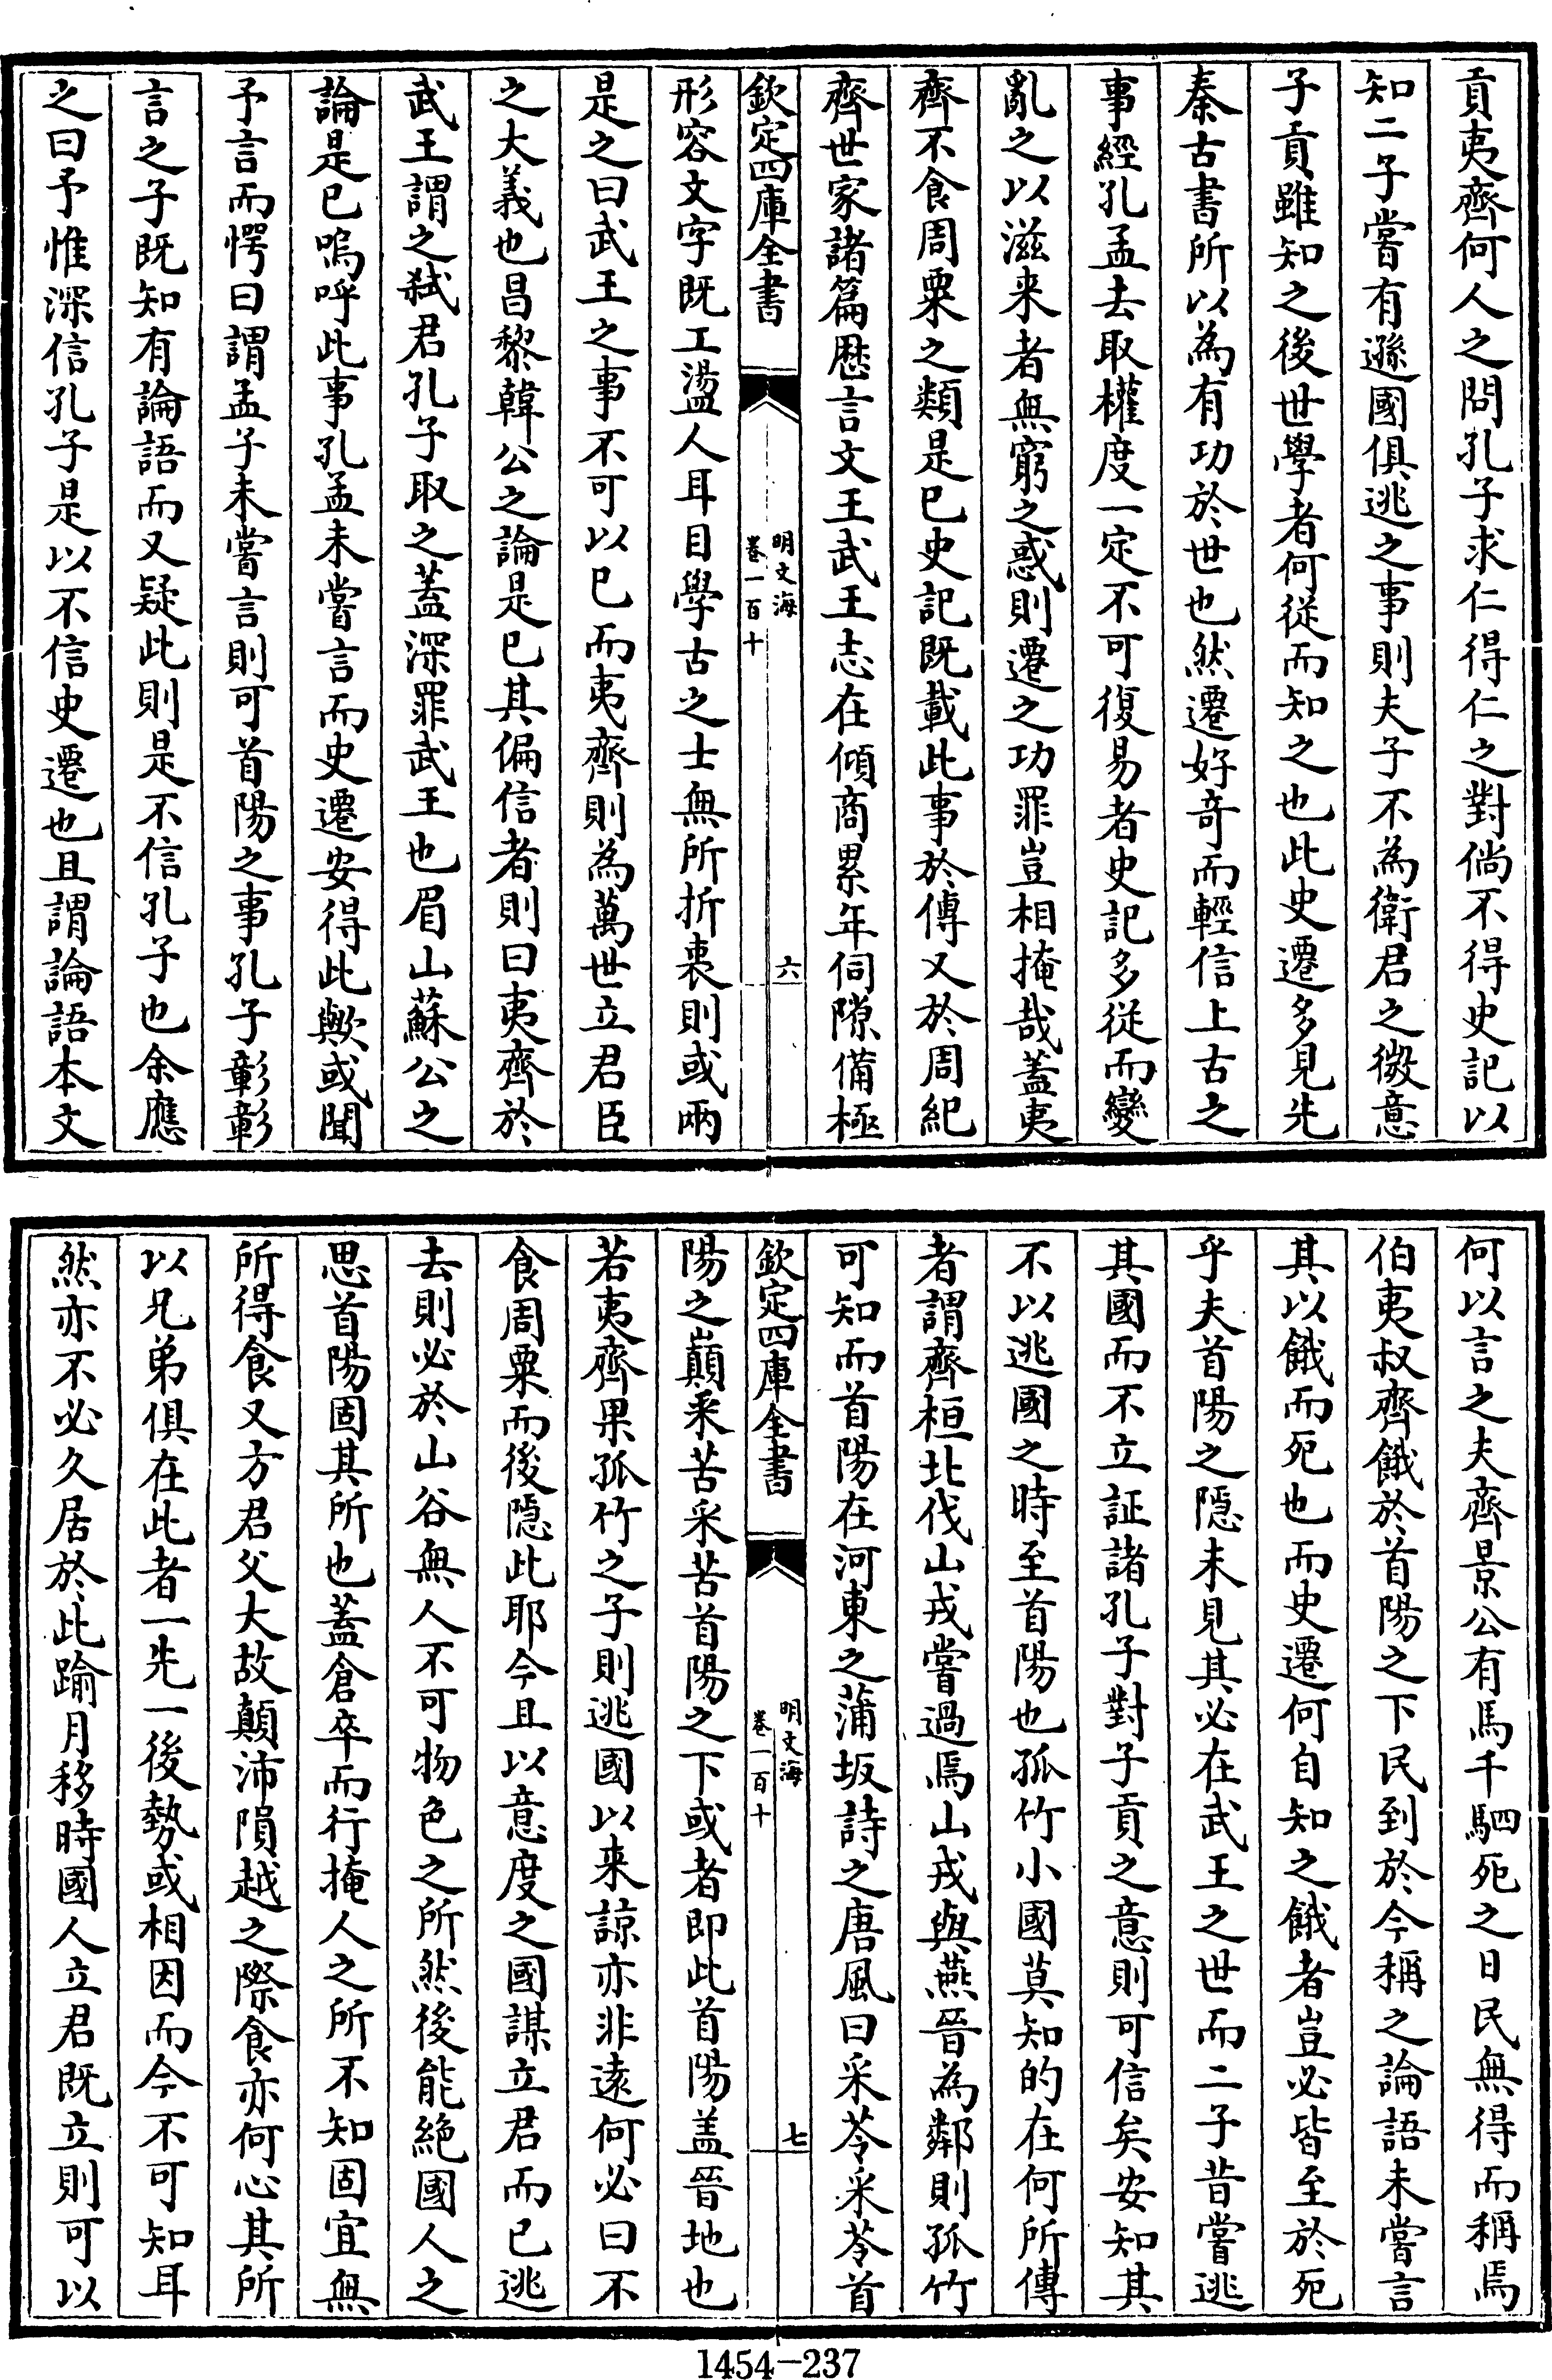 貢夷齊何人之問孔子求仁得仁之對倘不得史記以
知二子嘗有遜國俱逃之事則夫子不為衛君之微意
子貢雖知之後世學者何從而知之也此史遷多見先
秦古書所以為有功於世也然遷好竒而輕信上古之
事經孔孟去取權度一定不可復易者史記多從而變
亂之以滋来者無窮之惑則遷之功罪豈相掩哉蓋夷
齊不食周粟之類是已史記既載此事於傳又於周紀
齊世家諸篇歴言文王武王志在傾商累年伺隙備極
欽定四庫全書
明文海
卷一百十
六
形容文字既工盪人耳目學古之士無所折衷則或兩
是之曰武王之事不可以已而夷齊則為萬世立君臣
之大義也昌黎韓公之論是已其偏信者則曰夷齊於
武王謂之弑君孔子取之蓋深罪武王也眉山蘇公之
論是已嗚呼此事孔孟未嘗言而史遷安得此歟或聞
予言而愕曰謂孟子未嘗言則可首陽之事孔子彰彰
言之子既知有論語而又疑此則是不信孔子也余應
之曰予惟深信孔子是以不信史遷也且謂論語本文
何以言之夫齊景公有馬千駟死之日民無得而稱焉
伯夷叔齊餓於首陽之下民到於今稱之論語未嘗言
其以餓而死也而史遷何自知之餓者豈必皆至於死
乎夫首陽之隠未見其必在武王之世而二子昔嘗逃
其國而不立証諸孔子對子貢之意則可信矣安知其
不以逃國之時至首陽也孤竹小國莫知的在何所傳
者謂齊桓北伐山戎嘗過焉山戎與燕晉為鄰則孤竹
可知而首陽在河東之蒲坂詩之唐風曰采苓采苓首
欽定四庫全書
明文海
卷一百十
七
陽之巔采苦采苦首陽之下或者即此首陽盖晉地也
若夷齊果孤竹之子則逃國以来諒亦非遠何必曰不
食周粟而後隠此耶今且以意度之國謀立君而已逃
去則必於山谷無人不可物色之所然後能絶國人之
思首陽固其所也蓋倉卒而行掩人之所不知固宜無
所得食又方君父大故顛沛隕越之際食亦何心其所
以兄弟俱在此者一先一後勢或相因而今不可知耳
然亦不必久居於此踰月移時國人立君既立則可以
1454-237